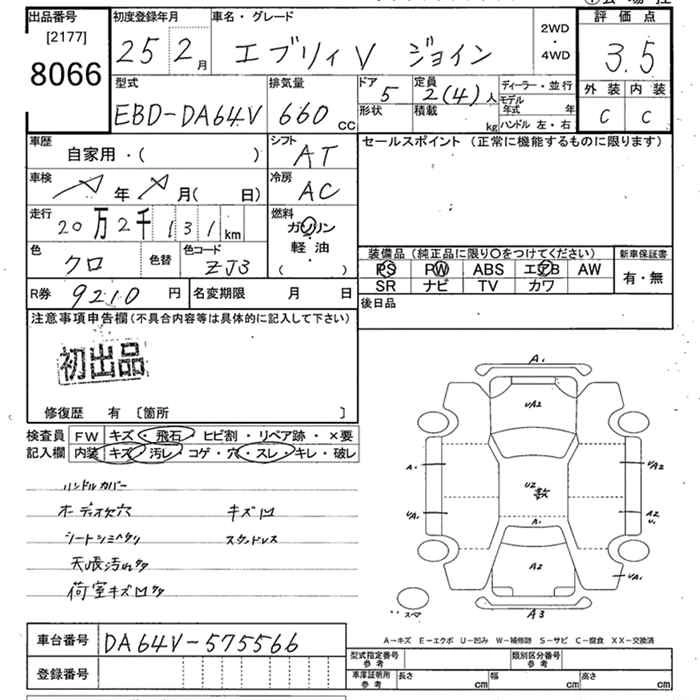 出品番号 初度登録年月 車名・グレード 評価点
[2177]
8066 25 2月 エブリィV ジョイン 2WD・4WD 3.5
型式 排気量 ドア 定員 ディーラー・並行 外装 内装
EBD-DA64V 660cc 5 2(4)人 モデル年式 年 C C
形状 積載 kg ハンドル 左・右
車歴 シフト セールスポイント (正常に機能するものに限ります)
自家用・( ) AT
車検 年 月( 日) 冷房 AC
走行 20万2千131km 燃料 ガソリン
軽油
( )
色 クロ 色替 色コード ZJ3
装備品 (純正品に限り〇をつけてください) 新車保証書
PS PW ABS エアB AW 有・無
SR ナビ TV カワ
R券 9210円 名変期限 月 日 後日品
注意事項申告欄(不具合内容等は具体的に記入して下さい)
初出品
修復歴 有 〔箇所 〕
検査員 FW キズ・飛石・ヒビ割・リペア跡・×要
記入欄 内装 キズ・汚レ・コゲ・穴・スレ・キレ・破レ
ハンドルカバー
オーディオ欠穴 キズ凹
シートシミヘタリ スタッドレス
天張汚レ
荷室キズ凹
A1
UA2
A1 UA2
U2
数
UA1 A1 A2
U1
A2
UA1
スマ A3
A-キズ E-エクボ U-凹み W-補修跡 S-サビ C-腐食 XX-交換済
車台番号 DA64V-575566
登録番号
型式指定番号 参考 類別区分番号 参考
車庫証明用 参考 長さ cm 幅 cm 高さ cm